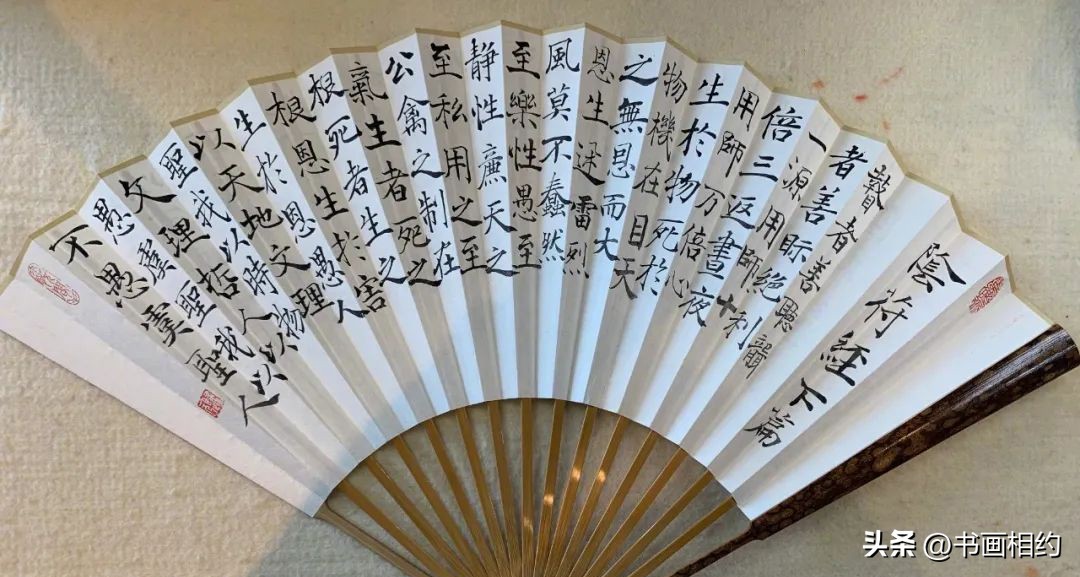 陰符經下篇
瞽者善聽聾
者善眎絕利
一源用師十
倍三返晝夜
用師万倍心
生於物死於
物機在目天
之無恩而大
恩生迅雷烈
風莫不蠢然
至樂性愚至
静性廉天之
至私用之至
公禽之制在
氣生者死之
根死者生之
根恩生於害
生於恩愚人
以天地文理
聖我以時物
文理哲人以
愚虞聖我以
不愚虞聖人
头条 @书画相约